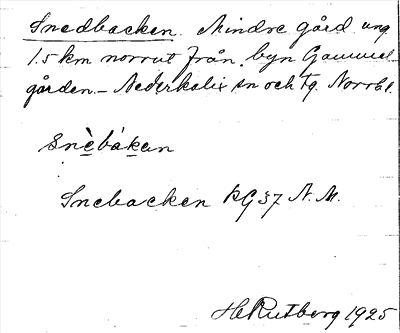 Snedbacken. Mindre gård ung.
1.5 km norrut från byn Gammel-
gården.- Nederkalix sn och tg. Norrb l.
snèbákan
Snebacken RG 37 N. M.
H Rutberg 1925